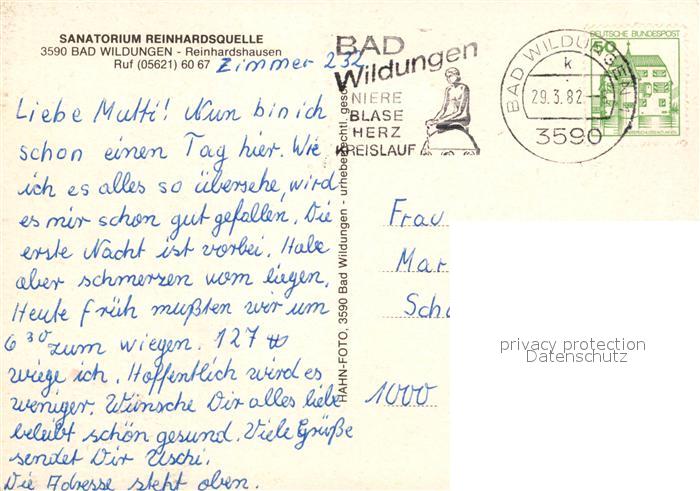 SANATORIUM REINHARDSQUELLE
3590 BAD WILDUNGEN - Reinhardshausen
Ruf (05621) 60 67
Zimmer 232
Liebe Mutti! Nun bin ich
schon einen Tag hier. Wie
ich es alles so übersehe, wird
es mir schon gut gefallen. Die
erste Nacht ist vorbei. Habe
aber schmerzen vom liegen.
Heute früh mußten wir um
6 30 zum wiegen. 127 ℔
wiege ich. Hoffentlich wird es
weniger. Wünsche Dir alles liebe
bleibt schön gesund. Viele Grüße
sendet Dir Uschi.
Die Adresse steht oben.
HAHN-FOTO, 3590 Bad Wildungen - urheberrechtl. gesch.
BAD
Wildungen
NIERE
BLASE
HERZ
KREISLAUF
BAD WILDUNGEN 1
k
29.3.82
3590
DEUTSCHE BUNDESPOST
50
Frau
Mar
Scha
1000
privacy protection
Datenschutz